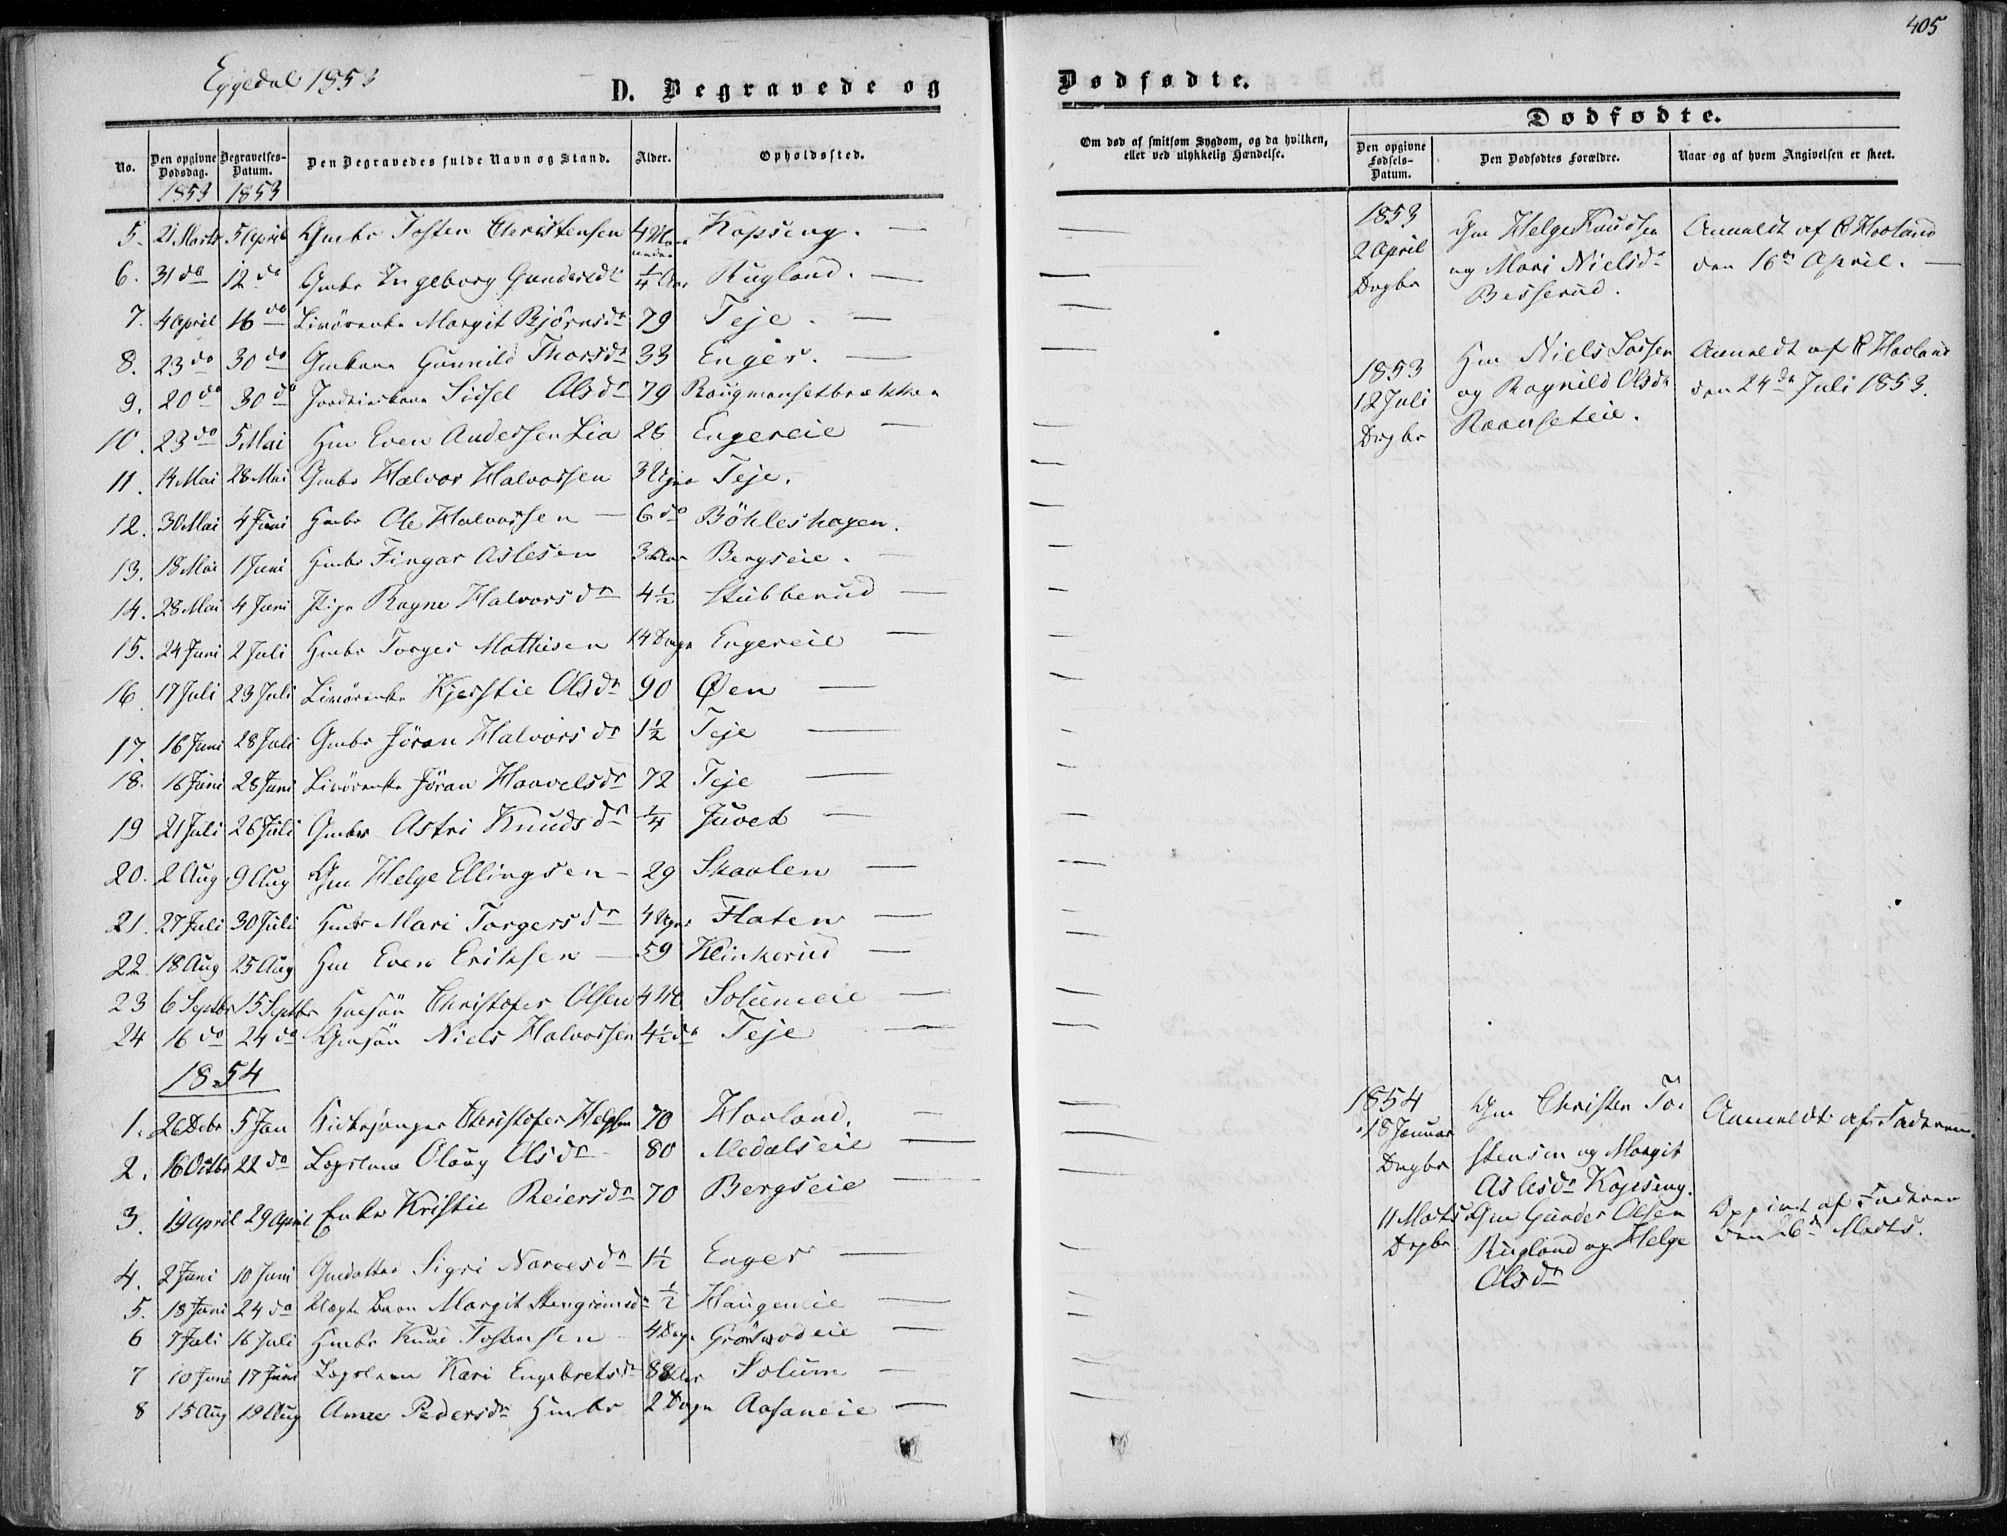 405
Eggedal 1853
D. Begravede og
Dødfødte.
No.
Den opgivne Dødsdag.
Begravelses-Datum.
Den Begravedes fulde Navn og Stand.
Alder.
Opholdssted.
1853 1853
5. 21 Marts 5 April Gmbr Tosten Christensen 4 Maaneder Kopseng. —
6. 31 do 12 do Gmbr Ingeborg Gundersdr 1/4 Aar Rugland. —
7. 4 April 16 do Livörenke Margit Björnsdr 79 Teje. —
8. 23 do 30 do Gmkone Gunnild Thorsdr 33 Enger. —
9. 20 do 30 do Sidsel Olsdr 79
10. 23 do 5 Mai Hm Even Andersen Lia 28 Engereie —
11. 14 Mai 28 Mai Gmbr Halvor Halvorsen 3 Uger Teje.
12. 30 Mai 4 Juni Hmbr Ole Halvorsen — 6 do Böhleshagen.
13. 18 Mai 1 Juni Hmbr Fingar Aslesen 3 Aar Bergseie. —
14. 28 Mai 4 Juni Pige Ragne Halvorsdr 4 1/2 Stubberud —
15. 24 Juni 2 Juli Hmbr Torger Mathisen 14 Dage Engereie —
16. 17 Juli 23 Juli Livörenke Kjerstie Olsdr 90 Øen —
17. 16 Juni 28 Juli Gmbr Jöran Halvorsdr 1 1/2 Teje —
18. 16 Juni 28 Juni Livörenke Jöran Haavelsdr 72 Teje —
19 21 Juli 26 Juli Gmbr Astri Knudsdr 1/4 Juvet —
20. 2 Aug 9 Aug Gm Helge Ellingsen — 29 Skaalen —
21. 27 Juli 30 Juli Hmbr Mari Torgersdr 4 Uger Flaten —
22. 18 Aug 25 Aug Hm Even Eriksen — 59 Klinkerud —
23 6 Septbr 15 Septbr Hmsön Christofer Olsen 4 M Solumeie —
24 16 do 24 do Gmsön Niels Halvorsen 4 1/2 do Teje —
1854
1. 26 Debr 5 Jan Kirkesanger Christofer Helgesen 70 Haaland.
2. 16 Octbr 22 do Lægslem Olaug Olsdr 80 Medalseie —
3. 19 April 29 April Enke Kristie Reiersdr 70 Bergseie —
4. 2 Juni 10 Juni Gmdatter Sigri Narvesdr 1 1/2 Enger —
5. 18 Juni 24 do Uægte Barn Margit Stengrimsdr 1/2 Haugeneie —
6 7 Juli 16 Juli Hmbr Knud Tostensen — 4 Dage —
7 10 Juni 17 Juni Lægslem Kari Engebretsdr 88 Aar Solum —
8 15 Aug 19 Aug Anne Pedersdr Hmbr 2 Dage Aasaneie —
Om død af smitsom Sygdom, og da hvilken,
eller ved ulykkelig Hændelse.
Dødfødte.
Den opgivne Fødsels-Datum.
Den Dødfødtes Forældre.
Naar og af hvem Angivelsen er skeet.
1853
2 April
Drgbr
Gm Helge Knudsen
og Mari Nielsdr
Besserud.
Anmeldt af C Haaland
den 16de April. —
1853
12 Juli
Drgbr
Hm Niels Larsen
og Ragnild Olsdr
Raanseteie.
Anmeldt af C Haaland
den 24de Juli 1853.
1854
18 Januar
Drgbr
Gm Christen To-
stensen og Margit
Aslesdr Kopseng.
Anmeldt af Faderen.
11 Marts
Drgbr
Gm Gunder Olsen
Rugland og Helge
Olsdr
Oppivet af Faderen
den 26de Marts.